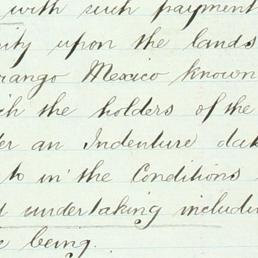 with such payment
upon the lands
Mexico known
the holders of the
an Indenture dat
to in the Conditions
undertaking includi
being.